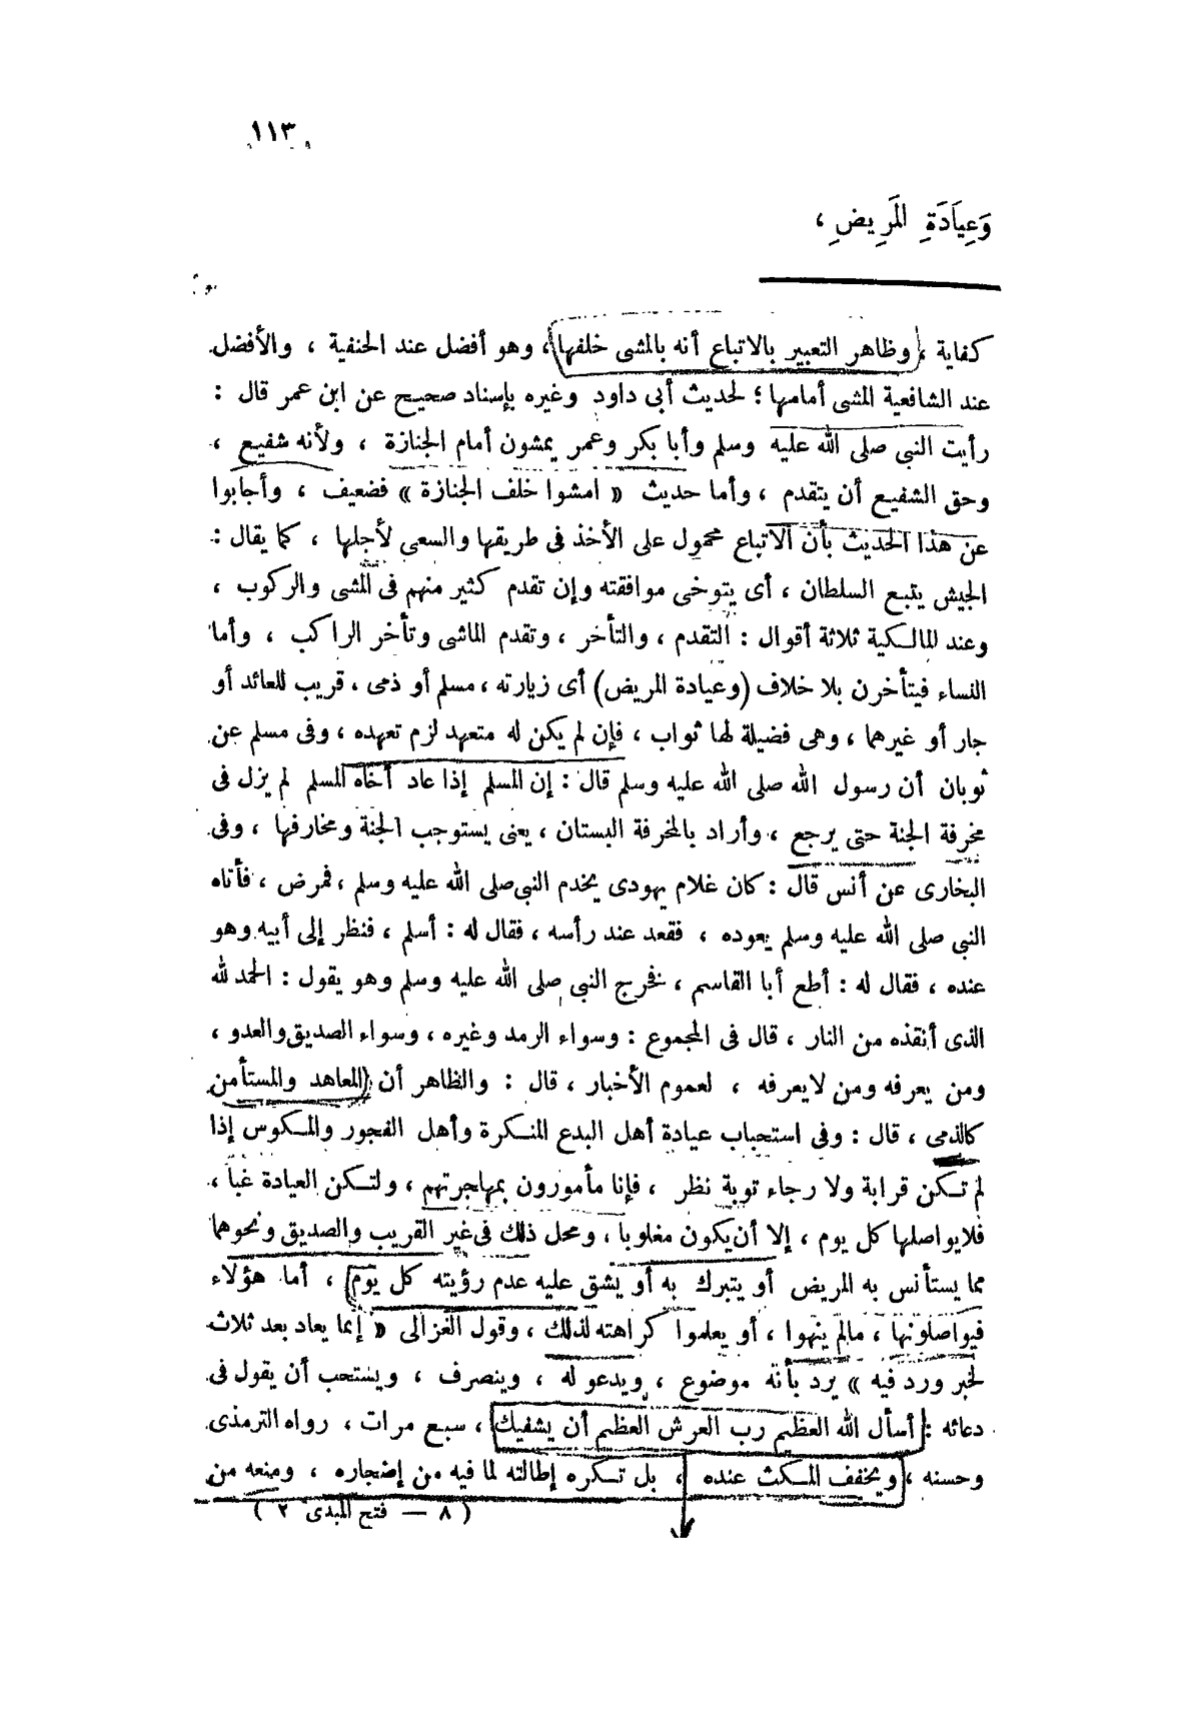 ١١٣
وَعِيَادَةِ المَرِيضِ ،
كفاية ، وظاهر التعبير بالاتباع أنه بالمشى خلفها ، وهو أفضل عند الحنفية ، والأفضل
عند الشافعية المشى أمامها ؛ لحديث أبى داود وغيره بإسناد صحيح عن ابن عمر قال :
رأيت النبى صلى الله عليه وسلم وأبا بكر وعمر يمشون أمام الجنازة ، ولأنه شفيع ،
وحق الشفيع أن يتقدم ، وأما حديث « امشوا خلف الجنازة » فضعيف ، وأجابوا
عن هذا الحديث بأن الاتباع محمول على الأخذ فى طريقها والسعى لأجلها ، كما يقال :
الجيش يتبع السلطان ، أى يتوخى موافقته وإن تقدم كثير منهم فى المشى والركوب ،
وعند المالكية ثلاثة أقوال : التقدم ، والتأخر ، وتقدم الماشى وتأخر الراكب ، وأما
النساء فيتأخرن بلا خلاف (وعيادة المريض) أى زيارته ، مسلم أو ذمى ، قريب للعائد أو
جار أو غيرهما ، وهى فضيلة لها ثواب ، فإن لم يكن له متعهد لزم تعهده ، وفى مسلم عن
ثوبان أن رسول الله صلى الله عليه وسلم قال : إن المسلم إذا عاد أخاه المسلم لم يزل فى
مخرفة الجنة حتى يرجع ، وأراد بالمخرفة البستان ، يعنى يستوجب الجنة ومخارفها ، وفى
البخارى عن أنس قال : كان غلام يهودى يخدم النبى صلى الله عليه وسلم ، فمرض ، فأتاه
النبى صلى الله عليه وسلم يعوده ، فقعد عند رأسه ، فقال له : أسلم ، فنظر إلى أبيه وهو
عنده ، فقال له : أطع أبا القاسم ، فخرج النبى صلى الله عليه وسلم وهو يقول : الحمد لله
الذى أنقذه من النار ، قال فى المجموع : وسواء الرمد وغيره ، وسواء الصديق والعدو ،
ومن يعرفه ومن لايعرفه ، لعموم الأخبار ، قال : والظاهر أن المعاهد والمستأمن
كالذمى ، قال : وفى استحباب عيادة أهل البدع المنكرة وأهل الفجور والمكوس إذا
لم تكن قرابة ولا رجاء توبة نظر ، فإنا مأمورون بمهاجرتهم ، ولتكن العيادة غباً ،
فلايواصلها كل يوم ، إلا أن يكون مغلوبا ، ومحل ذلك فى غير القريب والصديق ونحوهما
مما يستأنس به المريض أو يتبرك به أو يشق عليه عدم رؤيته كل يوم ، أما هؤلاء
فيواصلونها ، مالم ينهوا ، أو يعلموا كراهته لذلك ، وقول الغزالى « إنما يعاد بعد ثلاث
لخبر ورد فيه » يرد بأنه موضوع ، ويدعو له ، وينصرف ، ويستحب أن يقول فى
دعائه : أسأل الله العظيم رب العرش العظيم أن يشفيك ، سبع مرات ، رواه الترمذى
وحسنه ، ويخفف المكث عنده ، بل تكره إطالته لما فيه من إضجاره ، ومنعه من
( ٨ — فتح المبدى ٢ )